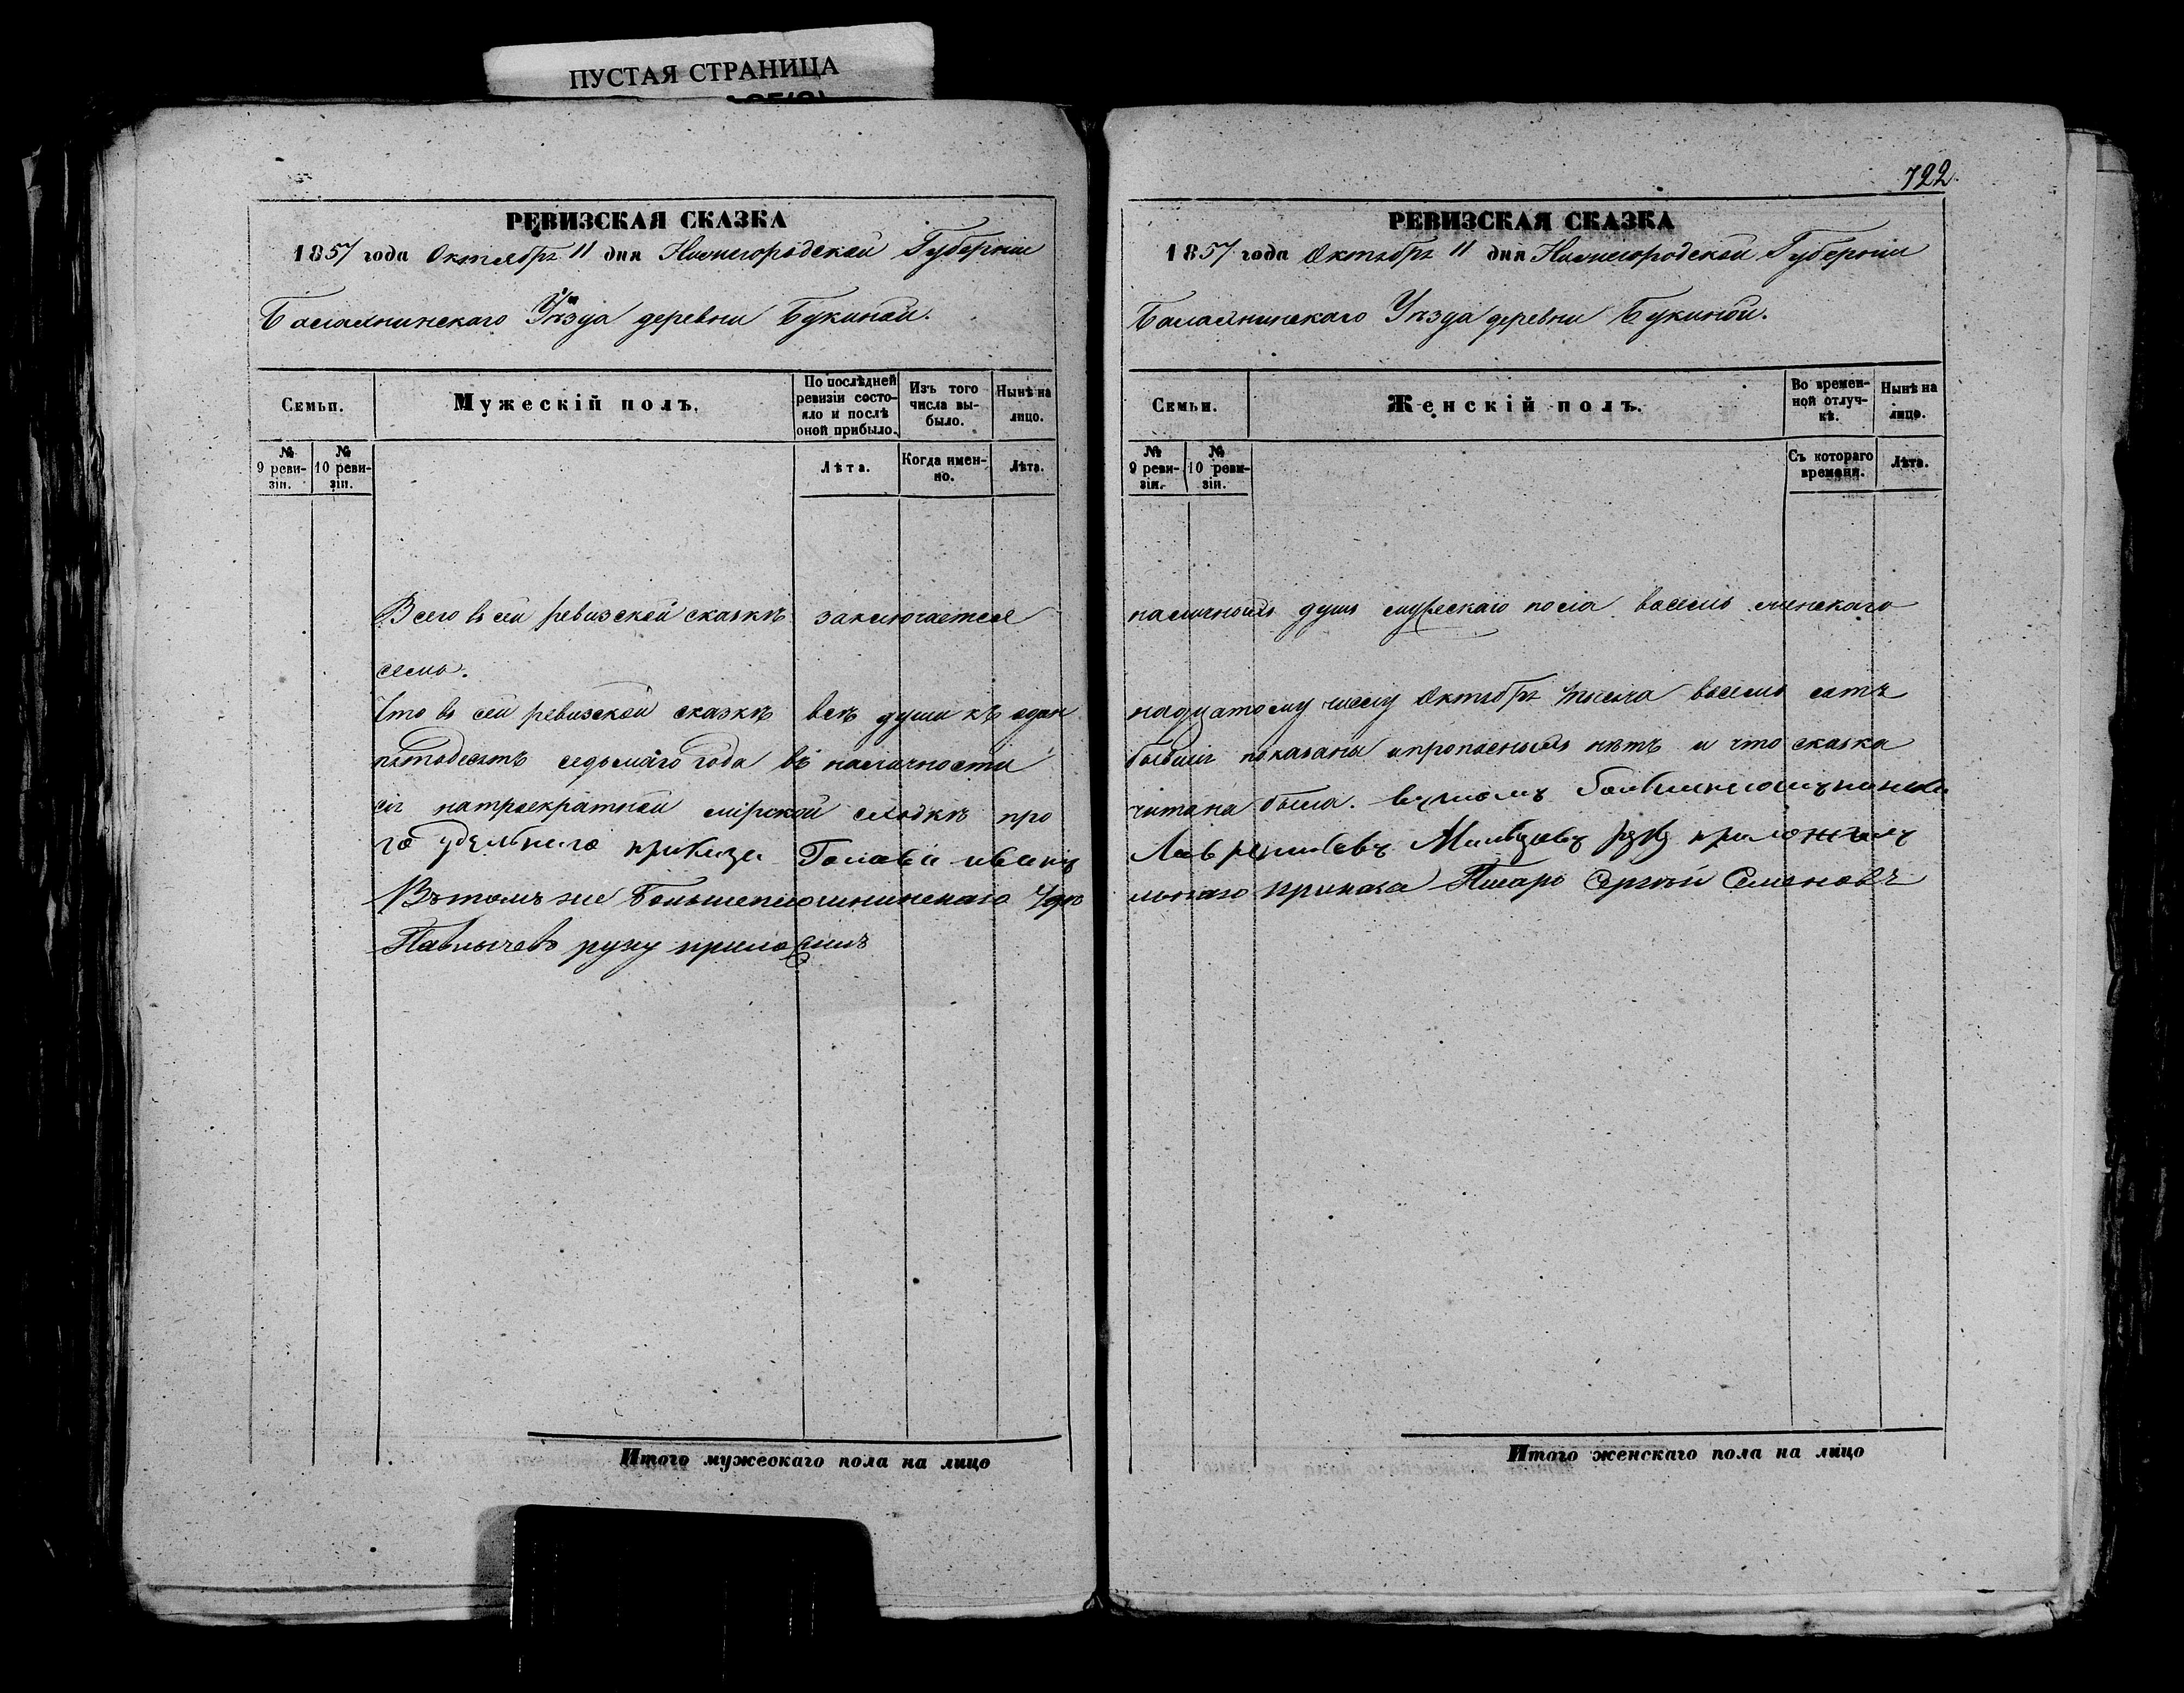 ПУСТАЯ СТРАНИЦА
РЕВИЗСКАЯ СКАЗКА
1857 года Октября 11 дня Нижегородской Губерніи
Балахнинскаго Уѣзда деревни Букиной.
Семьи.
Мужескій полъ.
По послѣдней ревизіи состояло и послѣ оной прибыло.
Изъ того числа выбыло.
Нынѣ на лицо.
№ 9 ревизіи.
№ 10 ревизіи.
Лѣта.
Когда именно.
Лѣта.
Всего въ сей ревизской сказкѣ заключается
семь.
Что въ сей ревизской сказкѣ всѣ души къ один
пятьдесятъ седьмаго года въ наличности
сія натроекратной мірской сходкѣ про
го удельнаго приказа Голова иванъ
Въ томъ же Большепесошнинскаго Удѣ
Павлычевъ руку приложилъ
Итого мужескаго пола на лицо
722.
РЕВИЗСКАЯ СКАЗКА
1857 года Октября 11 дня Нижегородской Губерніи
Балахнинскаго Уѣзда деревни Букиной.
Семьи.
Женскій полъ.
Во временной отлучкѣ.
Нынѣ на лицо.
№ 9 ревизіи.
№ 10 ревизіи.
Съ котораго времени.
Лѣта.
наличныхъ душъ мужескаго пола восемь женскаго
надцатому числу Октября тысяча восемь сотъ
бывшія показаны и прописныхъ нѣтъ и что сказка
читана была. втомъ
Лаврентьевъ руку приложилъ
льнаго приказа Писарь Сергѣй Семеновъ
Итого женскаго пола на лицо